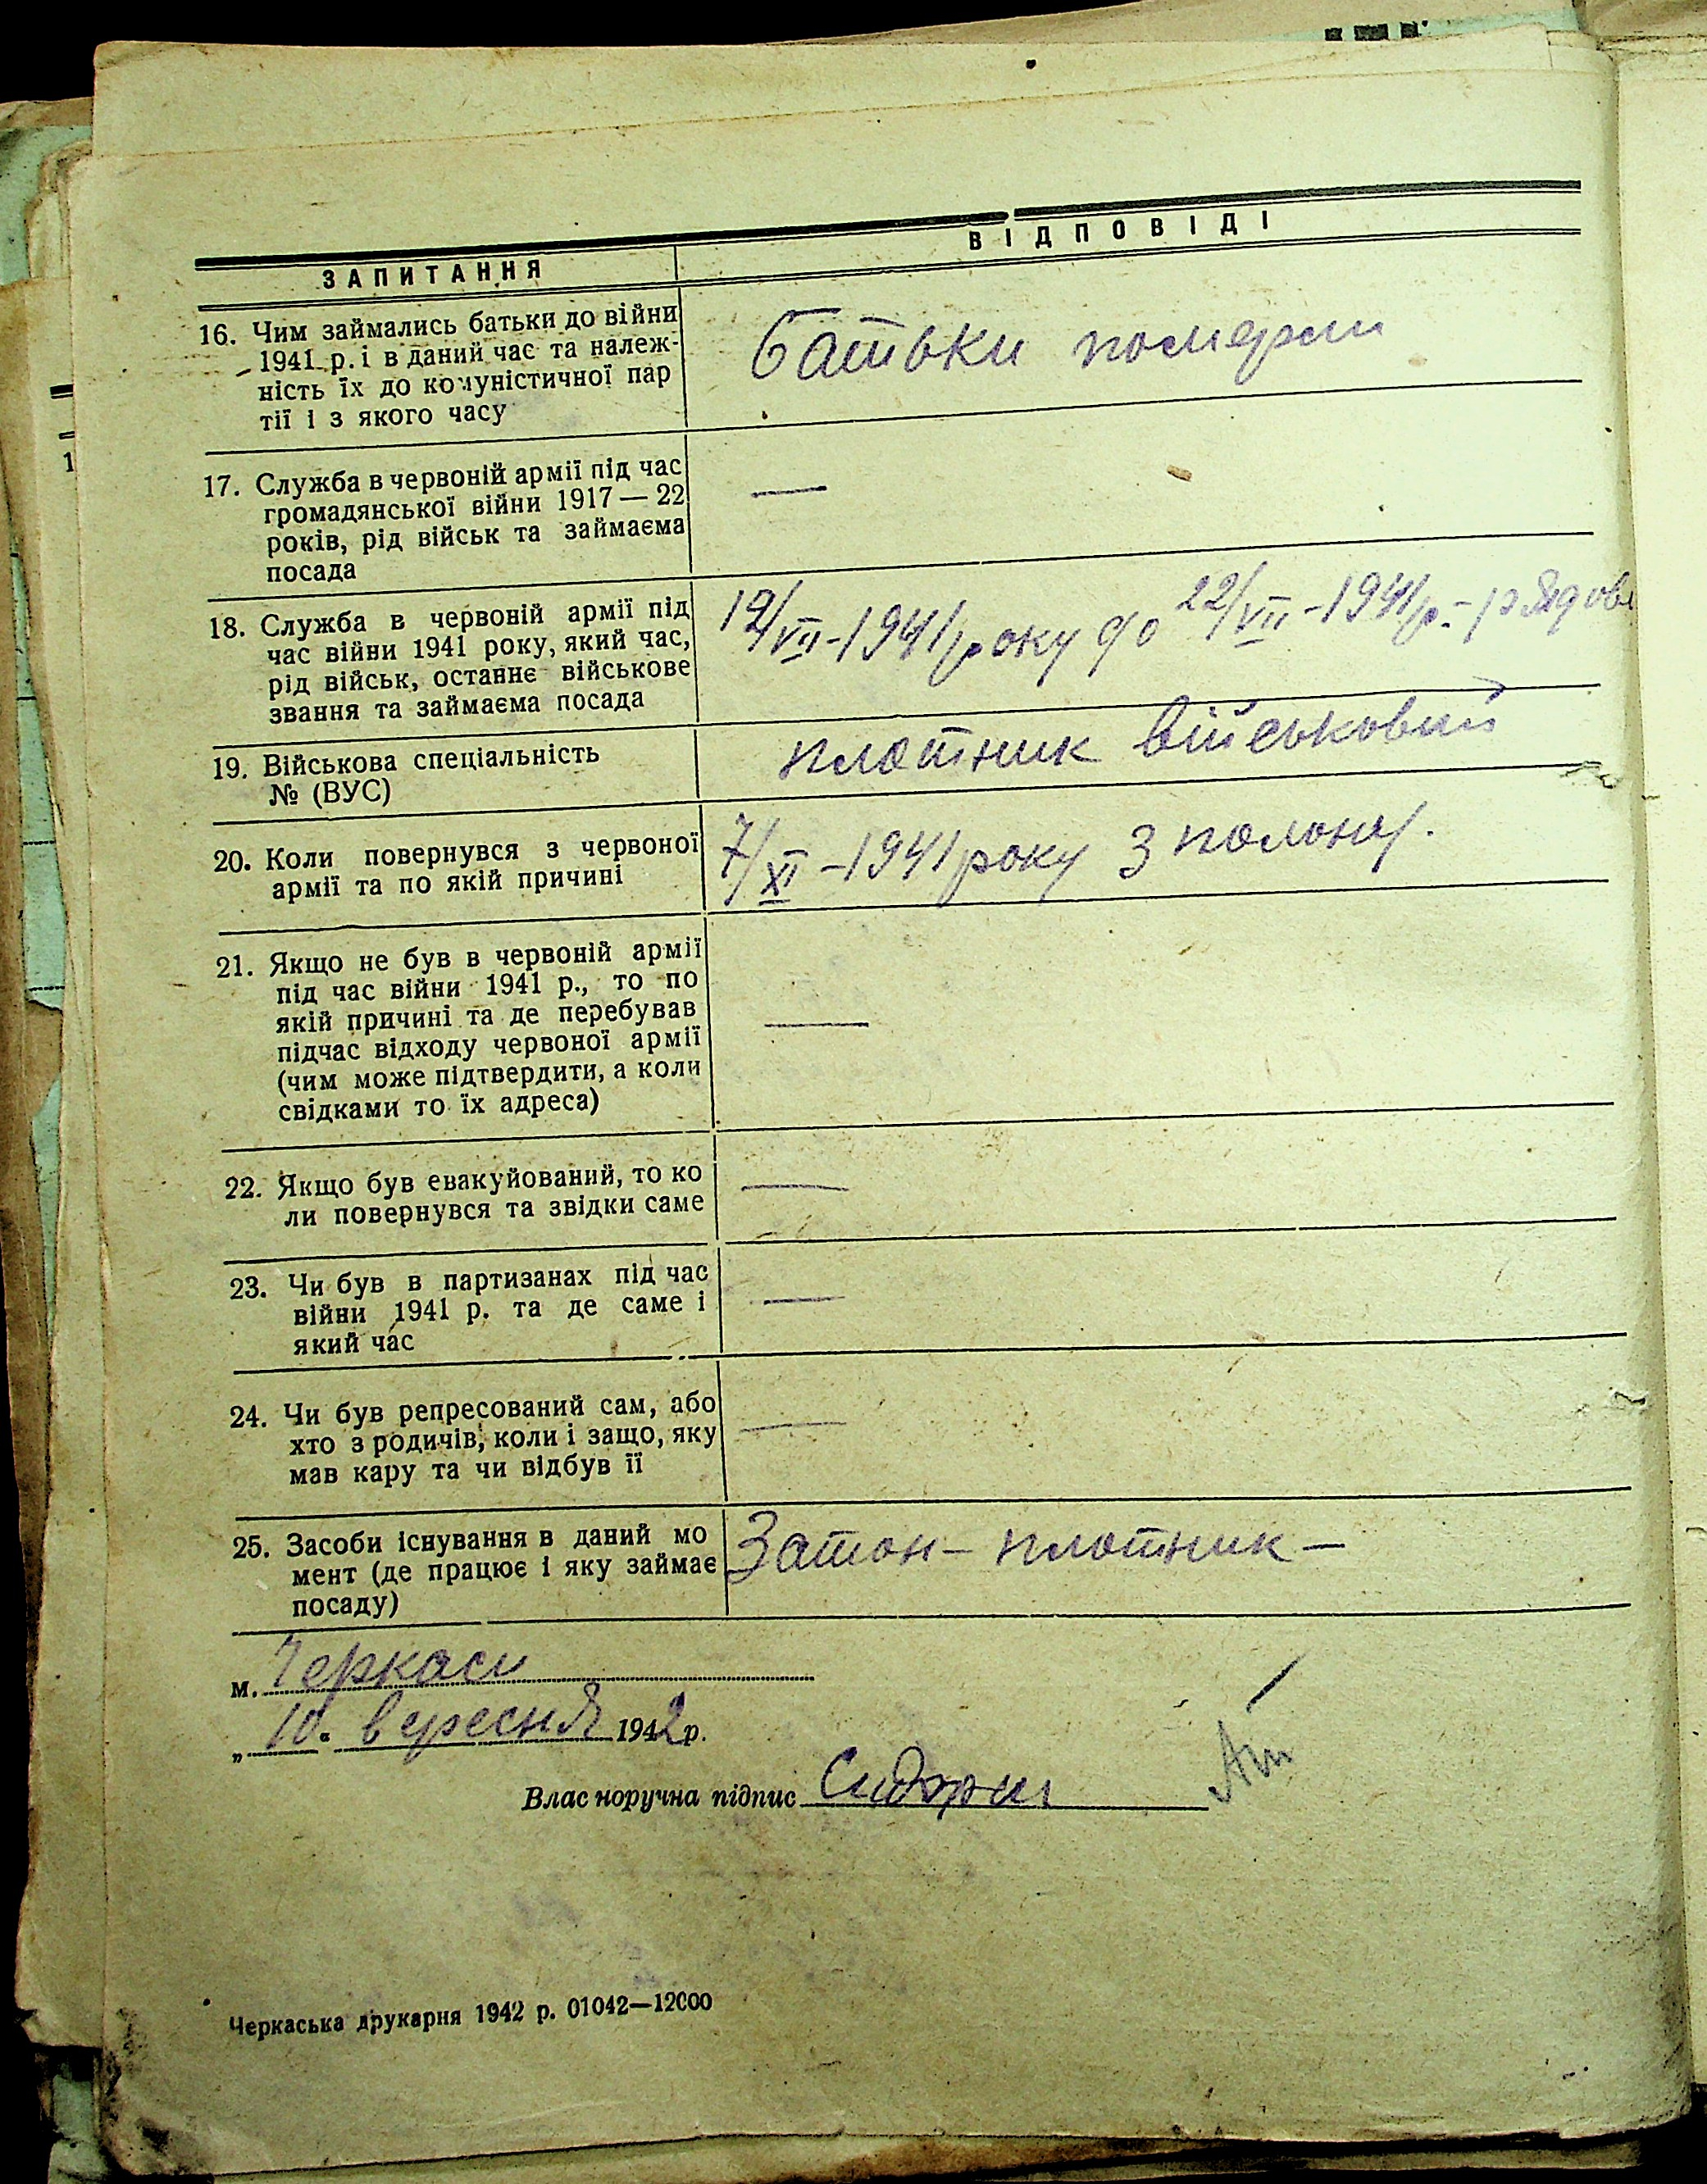 ЗАПИТАННЯ
ВІДПОВІДІ
16. Чим займались батьки до війни
1941 р. і в даний час та належ-
ність їх до комуністичної пар
тії і з якого часу
Батьки померли
17. Служба в червоній армії під час
громадянської війни 1917 — 22
років, рід військ та займаєма
посада
—
18. Служба в червоній армії під
час війни 1941 року, який час,
рід військ, останнє військове
звання та займаєма посада
12/VII-1941 року до 22/VII-1941 р.- рядов
19. Військова спеціальність
№ (ВУС)
плотник військовий
20. Коли повернувся з червоної
армії та по якій причині
7/XI-1941 року з полону.
21. Якщо не був в червоній армії
під час війни 1941 р., то по
якій причині та де перебував
підчас відходу червоної армії
(чим може підтвердити, а коли
свідками то їх адреса)
—
22. Якщо був евакуйований, то ко
ли повернувся та звідки саме
—
23. Чи був в партизанах під час
війни 1941 р. та де саме і
який час
—
24. Чи був репресований сам, або
хто з родичів, коли і защо, яку
мав кару та чи відбув її
—
25. Засоби існування в даний мо
мент (де працює і яку займає
посаду)
Затон - плотник -
м. Черкаси
„10" вересня 1942 р.
Власноручна підпис
Черкаська друкарня 1942 р. 01042—12000